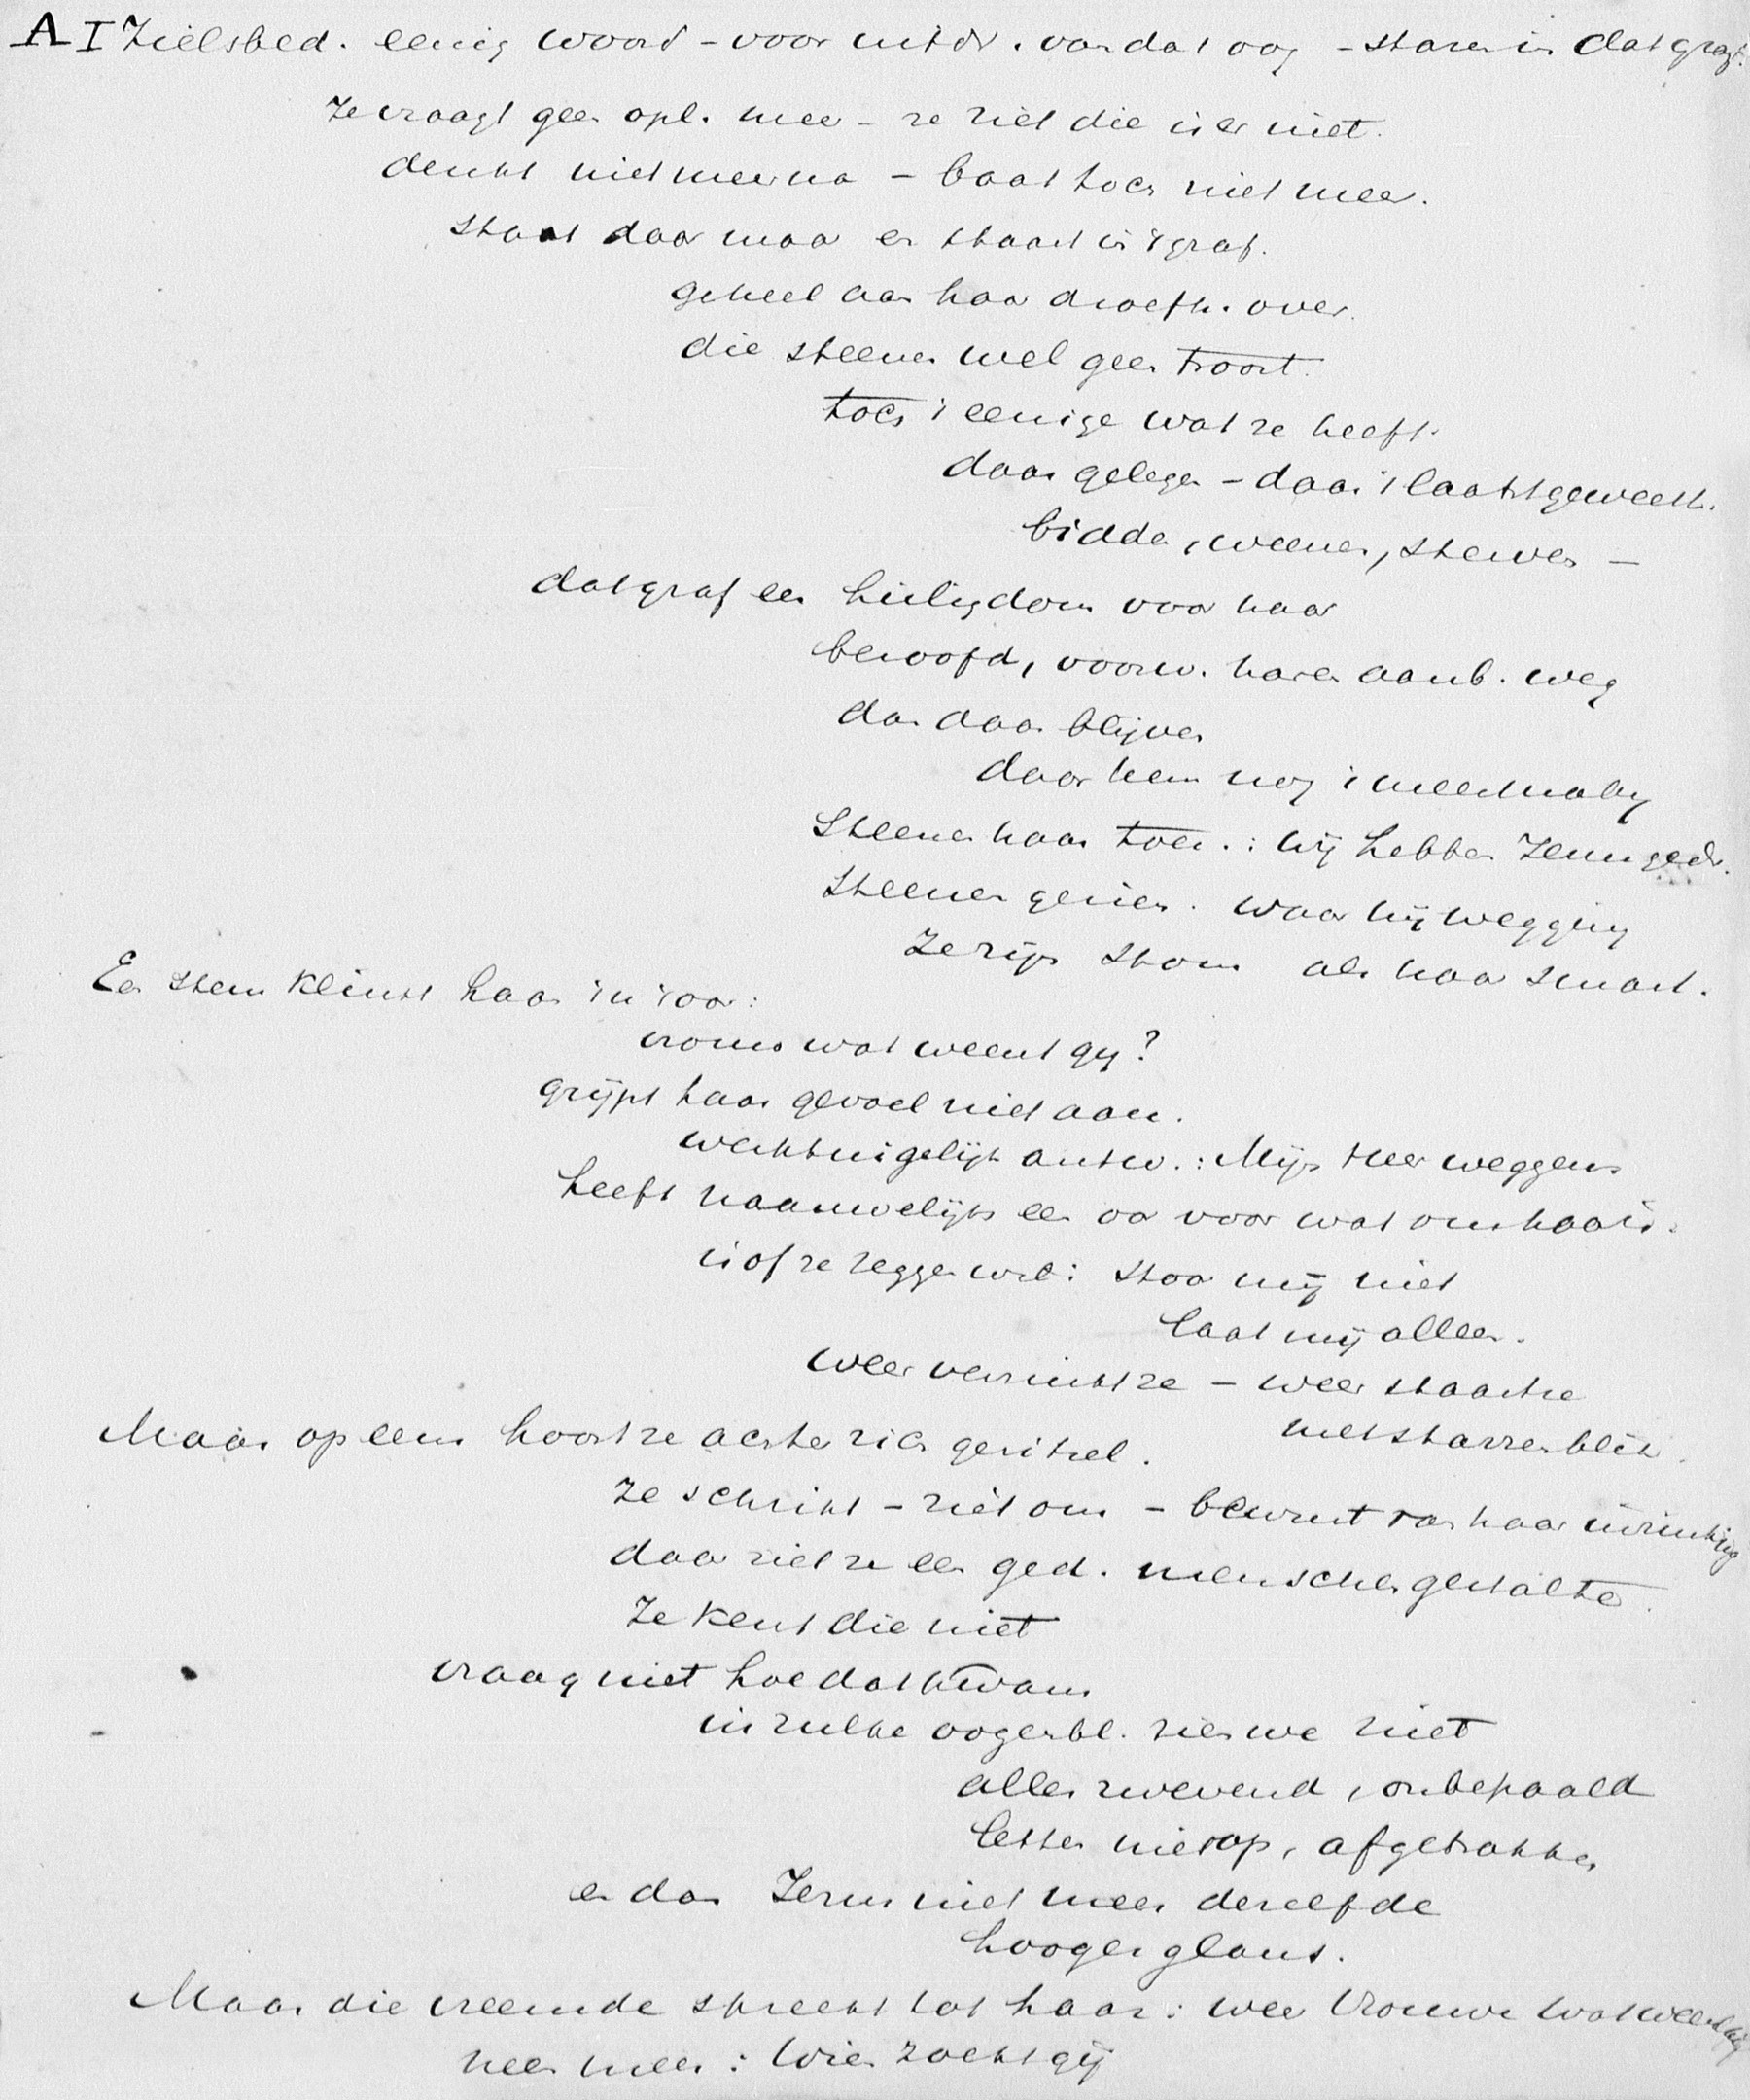 A I Zielsbed. eenig woord – voor uitdr. van dat oog – staren in dat graf.
Ze vraagt geen opl. meer – ze ziet die is er niet.
denkt niet meer na – baat toch niet meer.
staat daar maar en staart in 't graf.
geheel aan haar droefh. over.
die steenen wel geen troost.
toch 't eenige wat ze heeft.
daar gelegen – daar 't laatst geweest.
bidden, weenen, sterven –
dat graf een heiligdom voor haar
beroofd, voorw. harer aanb. weg
dan daar blijven
daar hem nog 't meest nabij
Steenen haar toer.: wij hebben Jezus gedr.
steenen gerien. waar hij wegging
ze zijn stom als haar smart.
Een stem klinkt haar in 't oor:
vrouw wat weent gij?
grijpt haar gevoel niet aan.
werktuigelijk antw.: Mijn Heer weggen
heeft naauwelijks een oor voor wat om haar is.
is of ze zeggen wil: stoor mij niet
laat mij alleen.
weer verzinkt ze – weer staart ze
met starren blik.
Maar op eens hoort ze achter zich geritsel.
Ze schrikt – ziet om – bewust van haar inzinking
daar ziet ze een ged. menschengestalte.
Ze kent die niet
vraag niet hoe dat kwam
in zulke oogenbl. zien we niet
alles zwevend, onbepaald
letten niet op, afgetrokken
en dan Jezus niet meer dezelfde
hooger glans.
Maar die vreemde spreekt tot haar: weer Vrouwe wat weent gij
neen meer: Wien zoekt gij